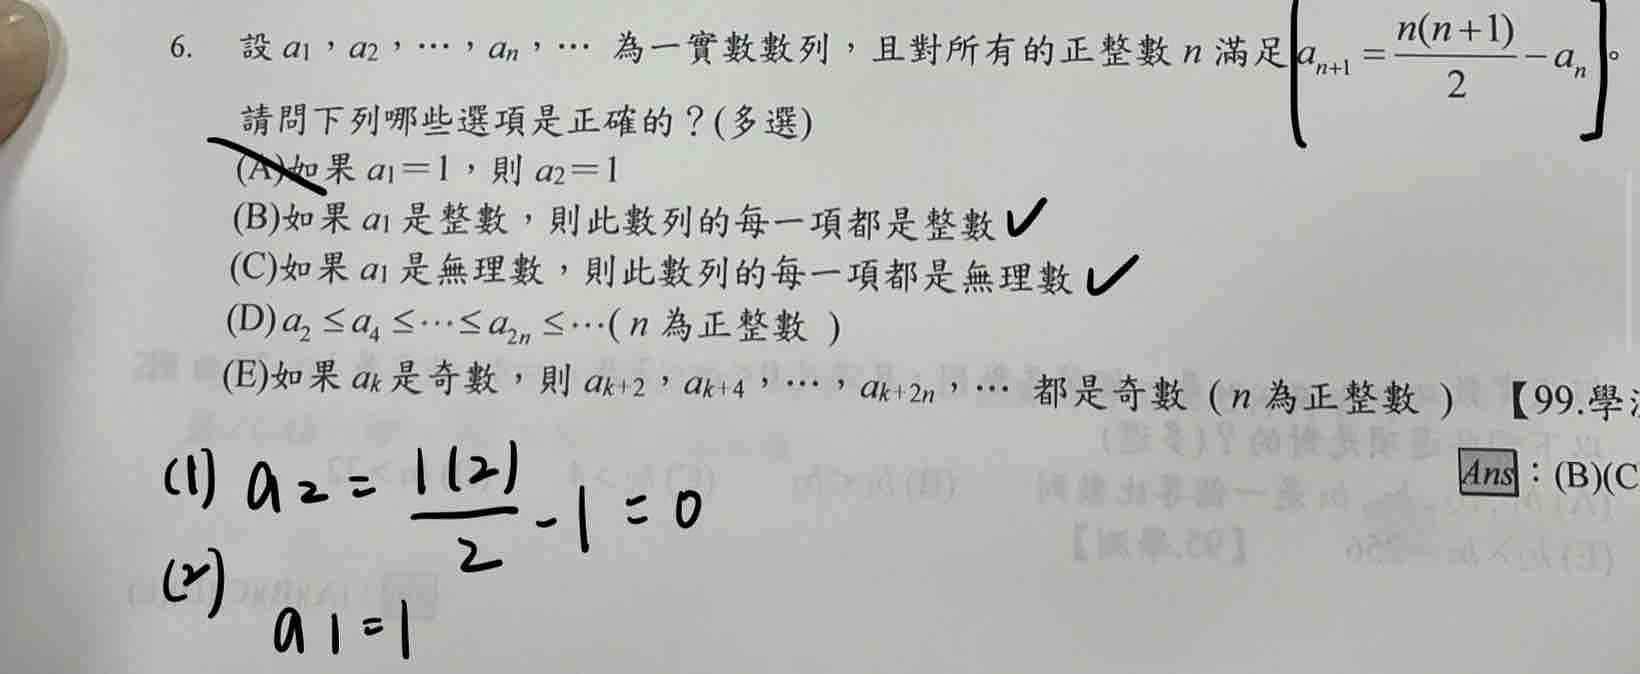 6. 設 a₁，a₂，…，aₙ，… 為一實數數列，且對所有的正整數 n 滿足 aₙ₊₁ = n(n+1)/2 − aₙ。
請問下列哪些選項是正確的？(多選)
(A)如果 a₁=1，則 a₂=1
(B)如果 a₁ 是整數，則此數列的每一項都是整數 ✓
(C)如果 a₁ 是無理數，則此數列的每一項都是無理數 ✓
(D) a₂ ≤ a₄ ≤ ⋯ ≤ a₂ₙ ≤ ⋯ ( n 為正整數 )
(E)如果 aₖ 是奇數，則 aₖ₊₂，aₖ₊₄，…，aₖ₊₂ₙ，… 都是奇數 ( n 為正整數 ) 【99.學
Ans：(B)(C
(1) a₂ = 1(2)/2 - 1 = 0
(2)
a₁=1